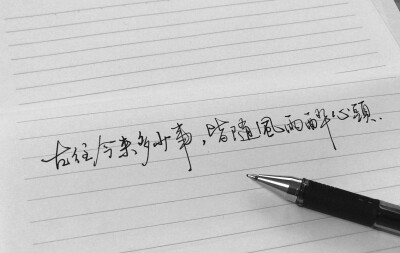 古往今来多少事，皆随風雨醉心頭.